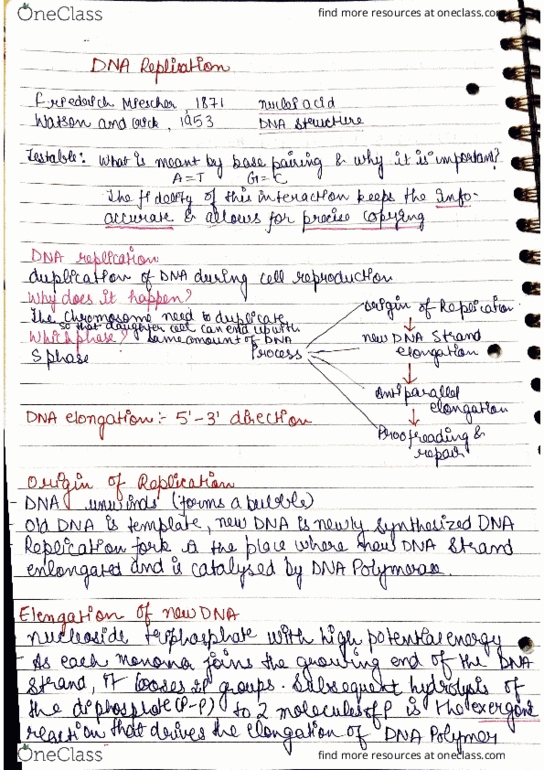 OneClass
find more resources at oneclass.com
DNA Replication
Friedrich Miescher, 1871 nucleic acid
Watson and Crick, 1953 DNA structure
Testable: What is meant by base pairing & why it is important?
A=T G=C
The fidelity of this interaction keeps the info-
accurate & allows for precise copying
DNA replication
duplication of DNA during cell reproduction
Why does it happen?
The chromosome need to duplicate
so that daughter cell can end up with
Which phase? same amount of DNA
S phase
Process
origin of Replication
new DNA Strand
elongation
Antiparallel
elongation
Proofreading &
repair
DNA elongation:- 5'-3' direction
Origin of Replication
- DNA unwinds (forms a bubble)
- Old DNA is template, new DNA is newly synthesized DNA
- Replication fork is the place where new DNA Strand
enlongated and is catalysed by DNA Polymerase.
Elengation of new DNA
nucleoside triphosphate with high potential energy
- As each monomer joins the growing end of the DNA
strand, it looses 2P groups. Subsequent hydrolysis of
the diphosplate (P-P) to 2 molecules of P is the exergonic
reaction that derives the elongation of DNA Polymer
OneClass
find more resources at oneclass.com